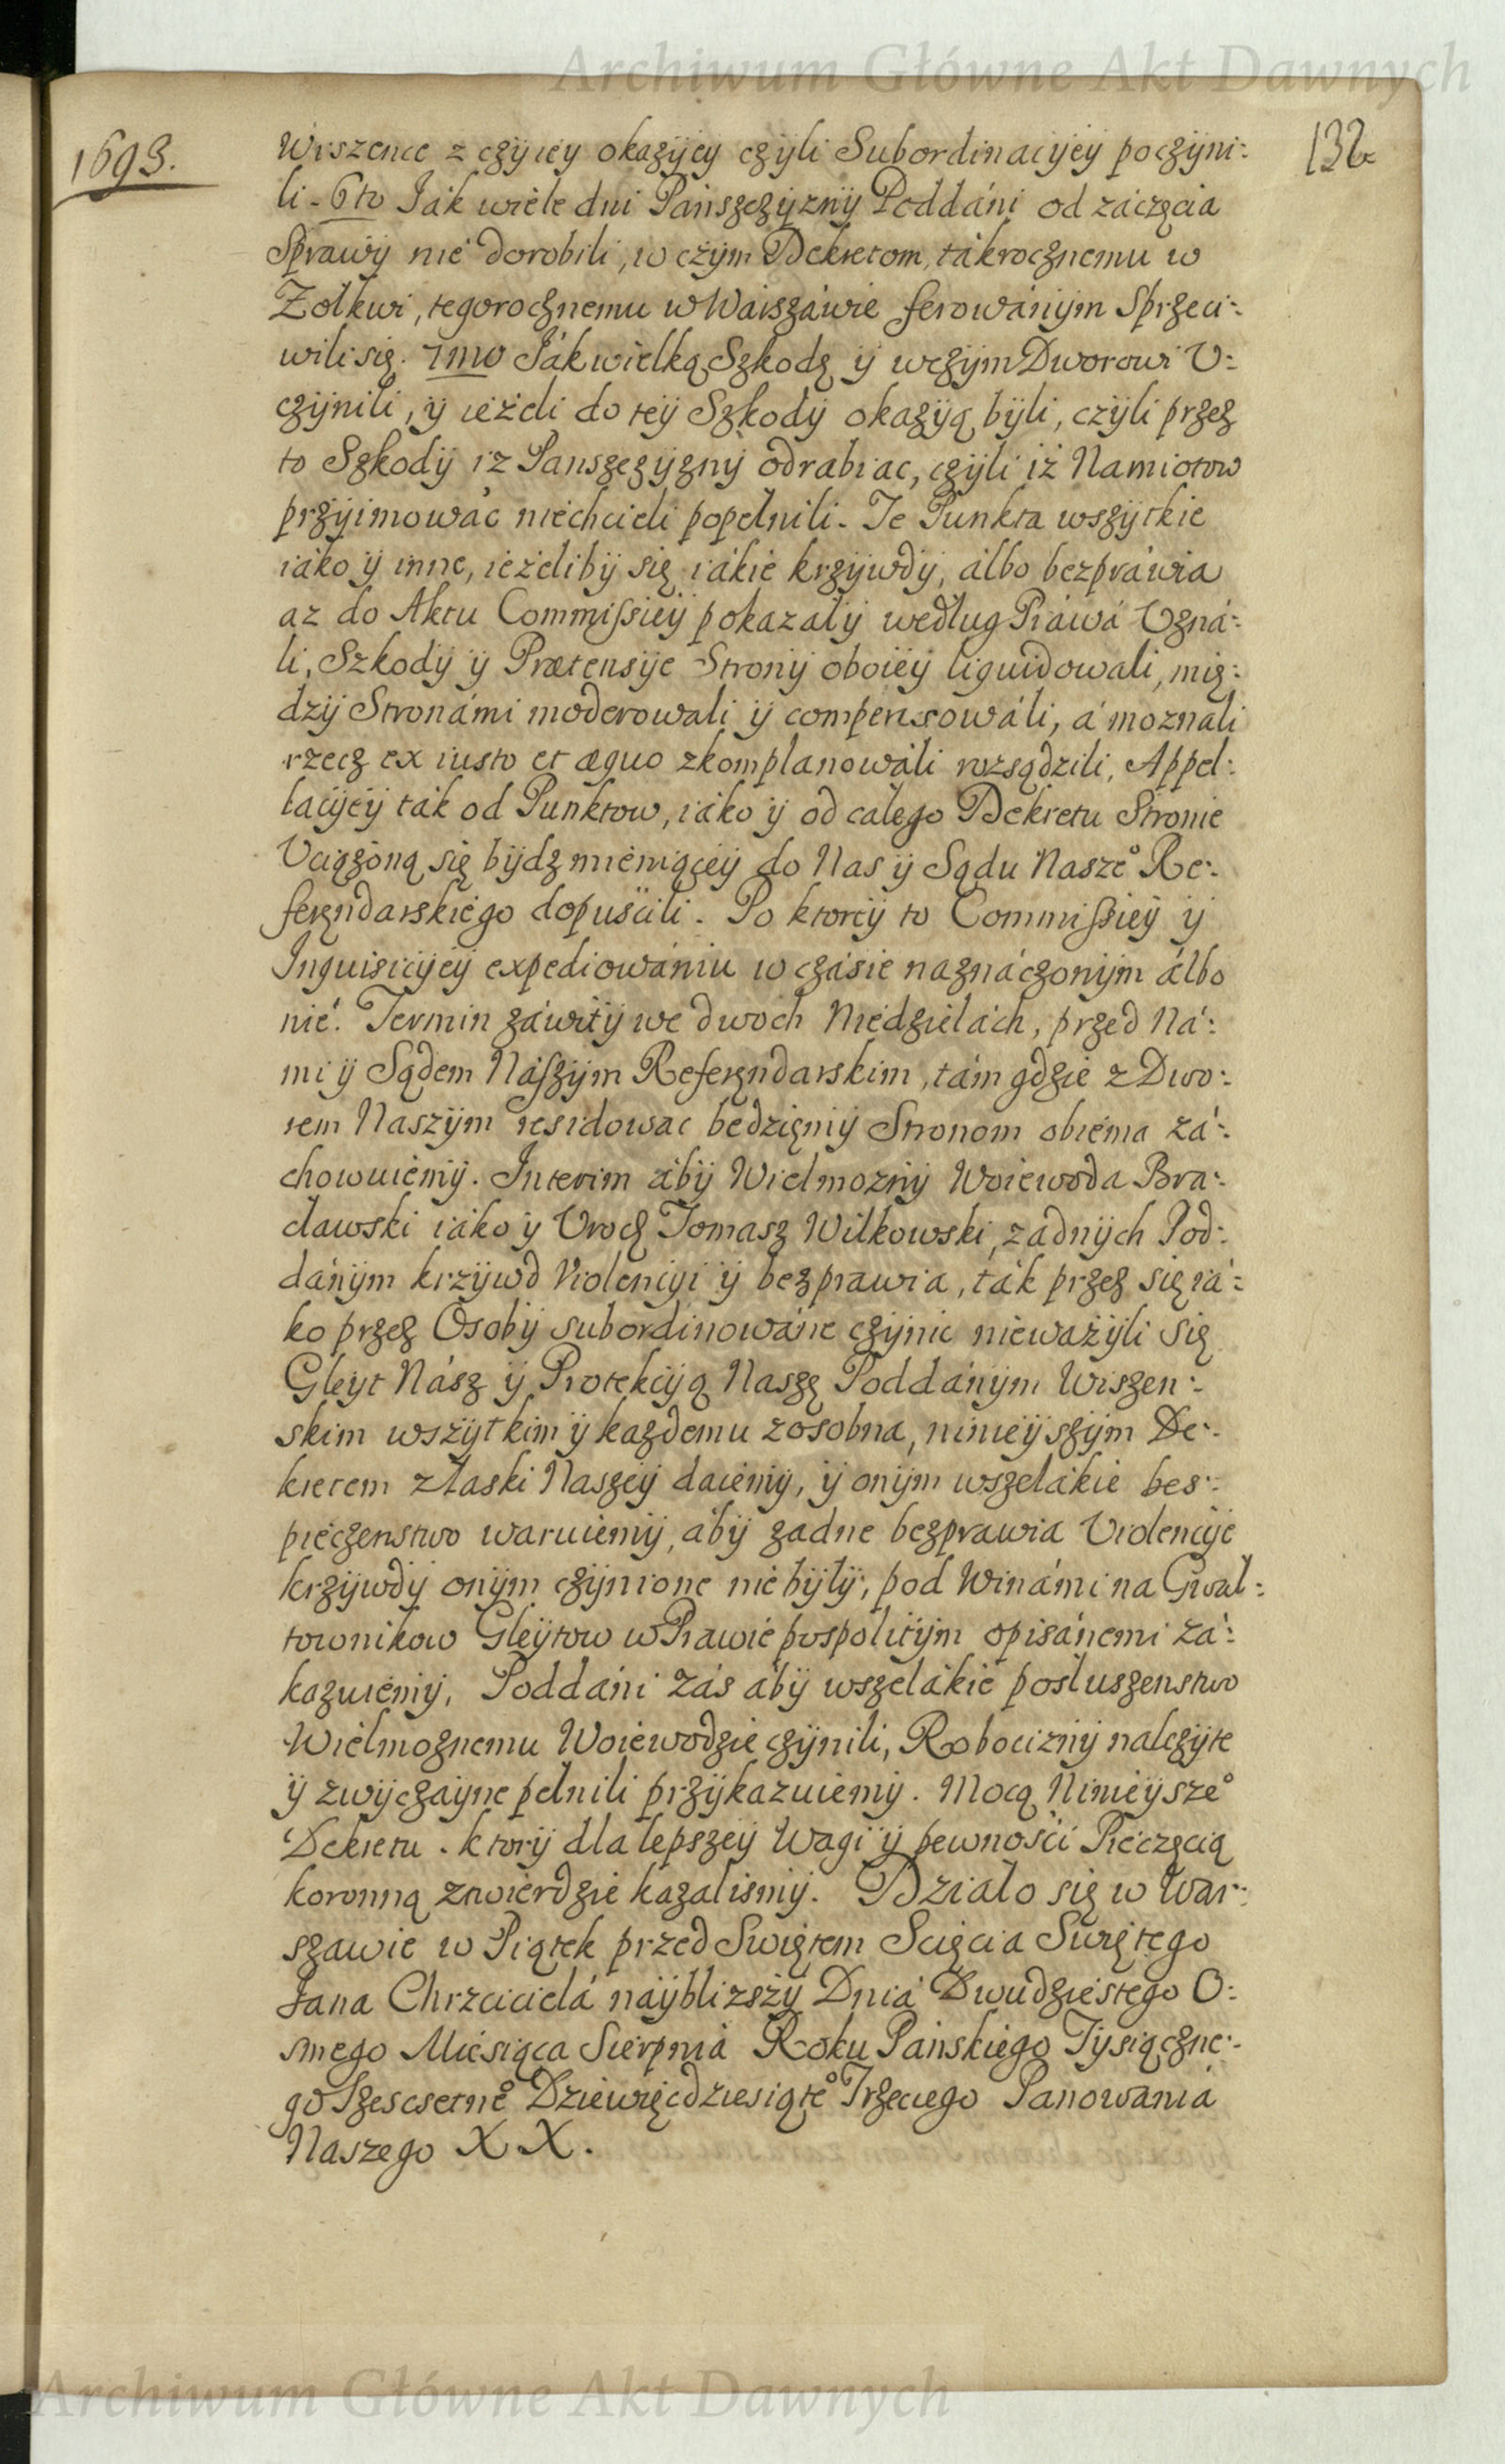 Archiwum Główne Akt Dawnych
1693.
132
Wiszence z czyiey okazyiey czyli Subordinacyiey poczyni:
li. 6to Ják wiele dni Pánszczyzny Poddáni od záczęcia
Sprawy nie dorobili, w czym Dekretom, tákrocznemu w
Zołkwi, tegorocznemu w Wárszáwie ferowánym Sprzeci:
wili się. 7mo Ják wielką Szkodę y wczym Dworowi V:
czynili, y ieżeli do tey Szkody okazyą byli, czyli przez
to Szkody iż Panszczyzny odrabiac, czyli iż Namiotow
przyimowáć niechcieli popełnili. Te Punkta wszytkie
iáko y inne, ieżeliby się iákie krzywdy, álbo bezpráwia
az do Aktu Commissiey pokazały według Práwá Vzná:
li, Szkody y Prætensye Strony oboiey liquidowali, mię:
dzy Stronámi moderowali y compensowáli, á moznali
rzecz ex iusto et æquo zkomplanowáli rozsądzili, Appel:
lacyey ták od Punktow, iáko y od całego Dekretu Stronie
Vciążoną się bydz mieniącey do Nas y Sądu Nasze° Re:
ferendarskiego dopuścili. Po ktorey to Commissiey y
Inquisicyey expediowániu w czásie náznáczonym álbo
nie. Termin záwity we dwoch Niedzielách, przed Ná:
mi y Sądem Nászym Referendarskim, tám gdzie z Dwo:
rem Naszym residowac będziemy Stronom obiema zá:
chowuiemy. Interim áby Wielmozny Woiewoda Bra:
cławski iáko y Vrodz Tomasz Wilkowski, zadnych Pod:
dánym krzywd Violencyi y bezprawia, ták przez się iá:
ko przez Osoby subordinowáne czynic nieważyli się
Gleyt Nász y Protekcyą Naszę Poddánym Wiszen:
skim wszytkim y kazdemu zosobna, ninieyszym De:
kretem z łaski Naszey daiemy, y onym wszelákie bes:
pieczenstwo waruiemy, áby zadne bezprawia Violencye
krzywdy onym czynione nie były, pod Winámi na Gwał:
townikow Gleytow w Prawie pospolitym opisánemi zá:
kazuiemy, Poddáni zás áby wszelákie posłuszenstwo
Wielmoznemu Woiewodzie czynili, Robocizny należyte
y zwyczáyne pełnili przykazuiemy. Mocą Ninieysze°
Dekretu. ktory dla lepszey Wagi y pewności Pieczęcią
koronną ztwierdzic kazaliśmy. Działo się w War:
szawie w Piątek przed Swiętem Scięcia Swiętego
Jana Chrzciciela naybliższy Dnia Dwudziestego O:
smego Miesiąca Sierpnia Roku Pańskiego Tysiączne:
go Szescsetne° Dziewięcdziesiąte° Trzeciego Panowánia
Naszego XX.
Archiwum Główne Akt Dawnych